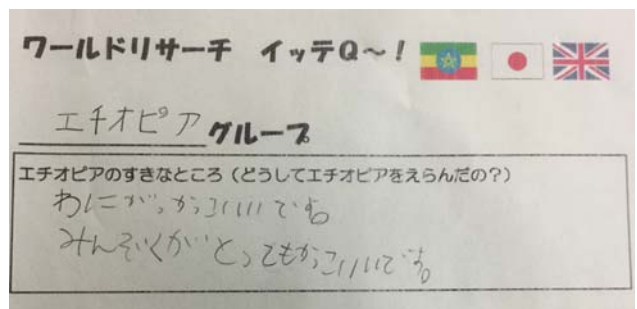 ワールドリサーチ イッテQ~!
エチオピア グループ
エチオピアのすきなところ(どうしてエチオピアをえらんだの?)
わにがっかっこいいです。
みんぞくがとってもかっこいいです。